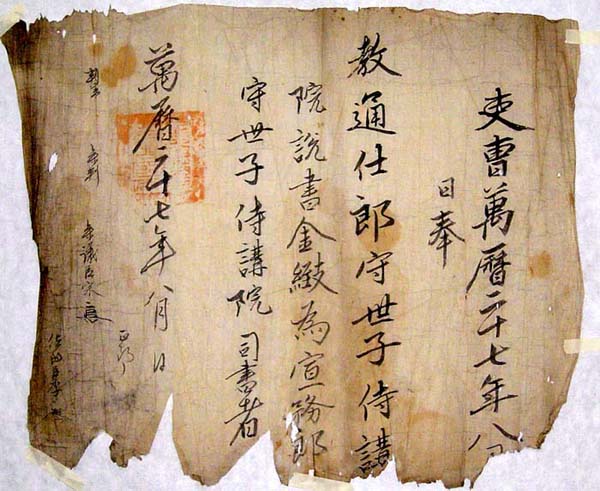 吏曹萬曆二十七年八月
日奉
教通仕郎守世子侍講
院說書金緻爲宣務郎
守世子侍講院司書者
萬曆二十七年八月 日
判書
參判
參議臣宋
正郎
佐郎臣李